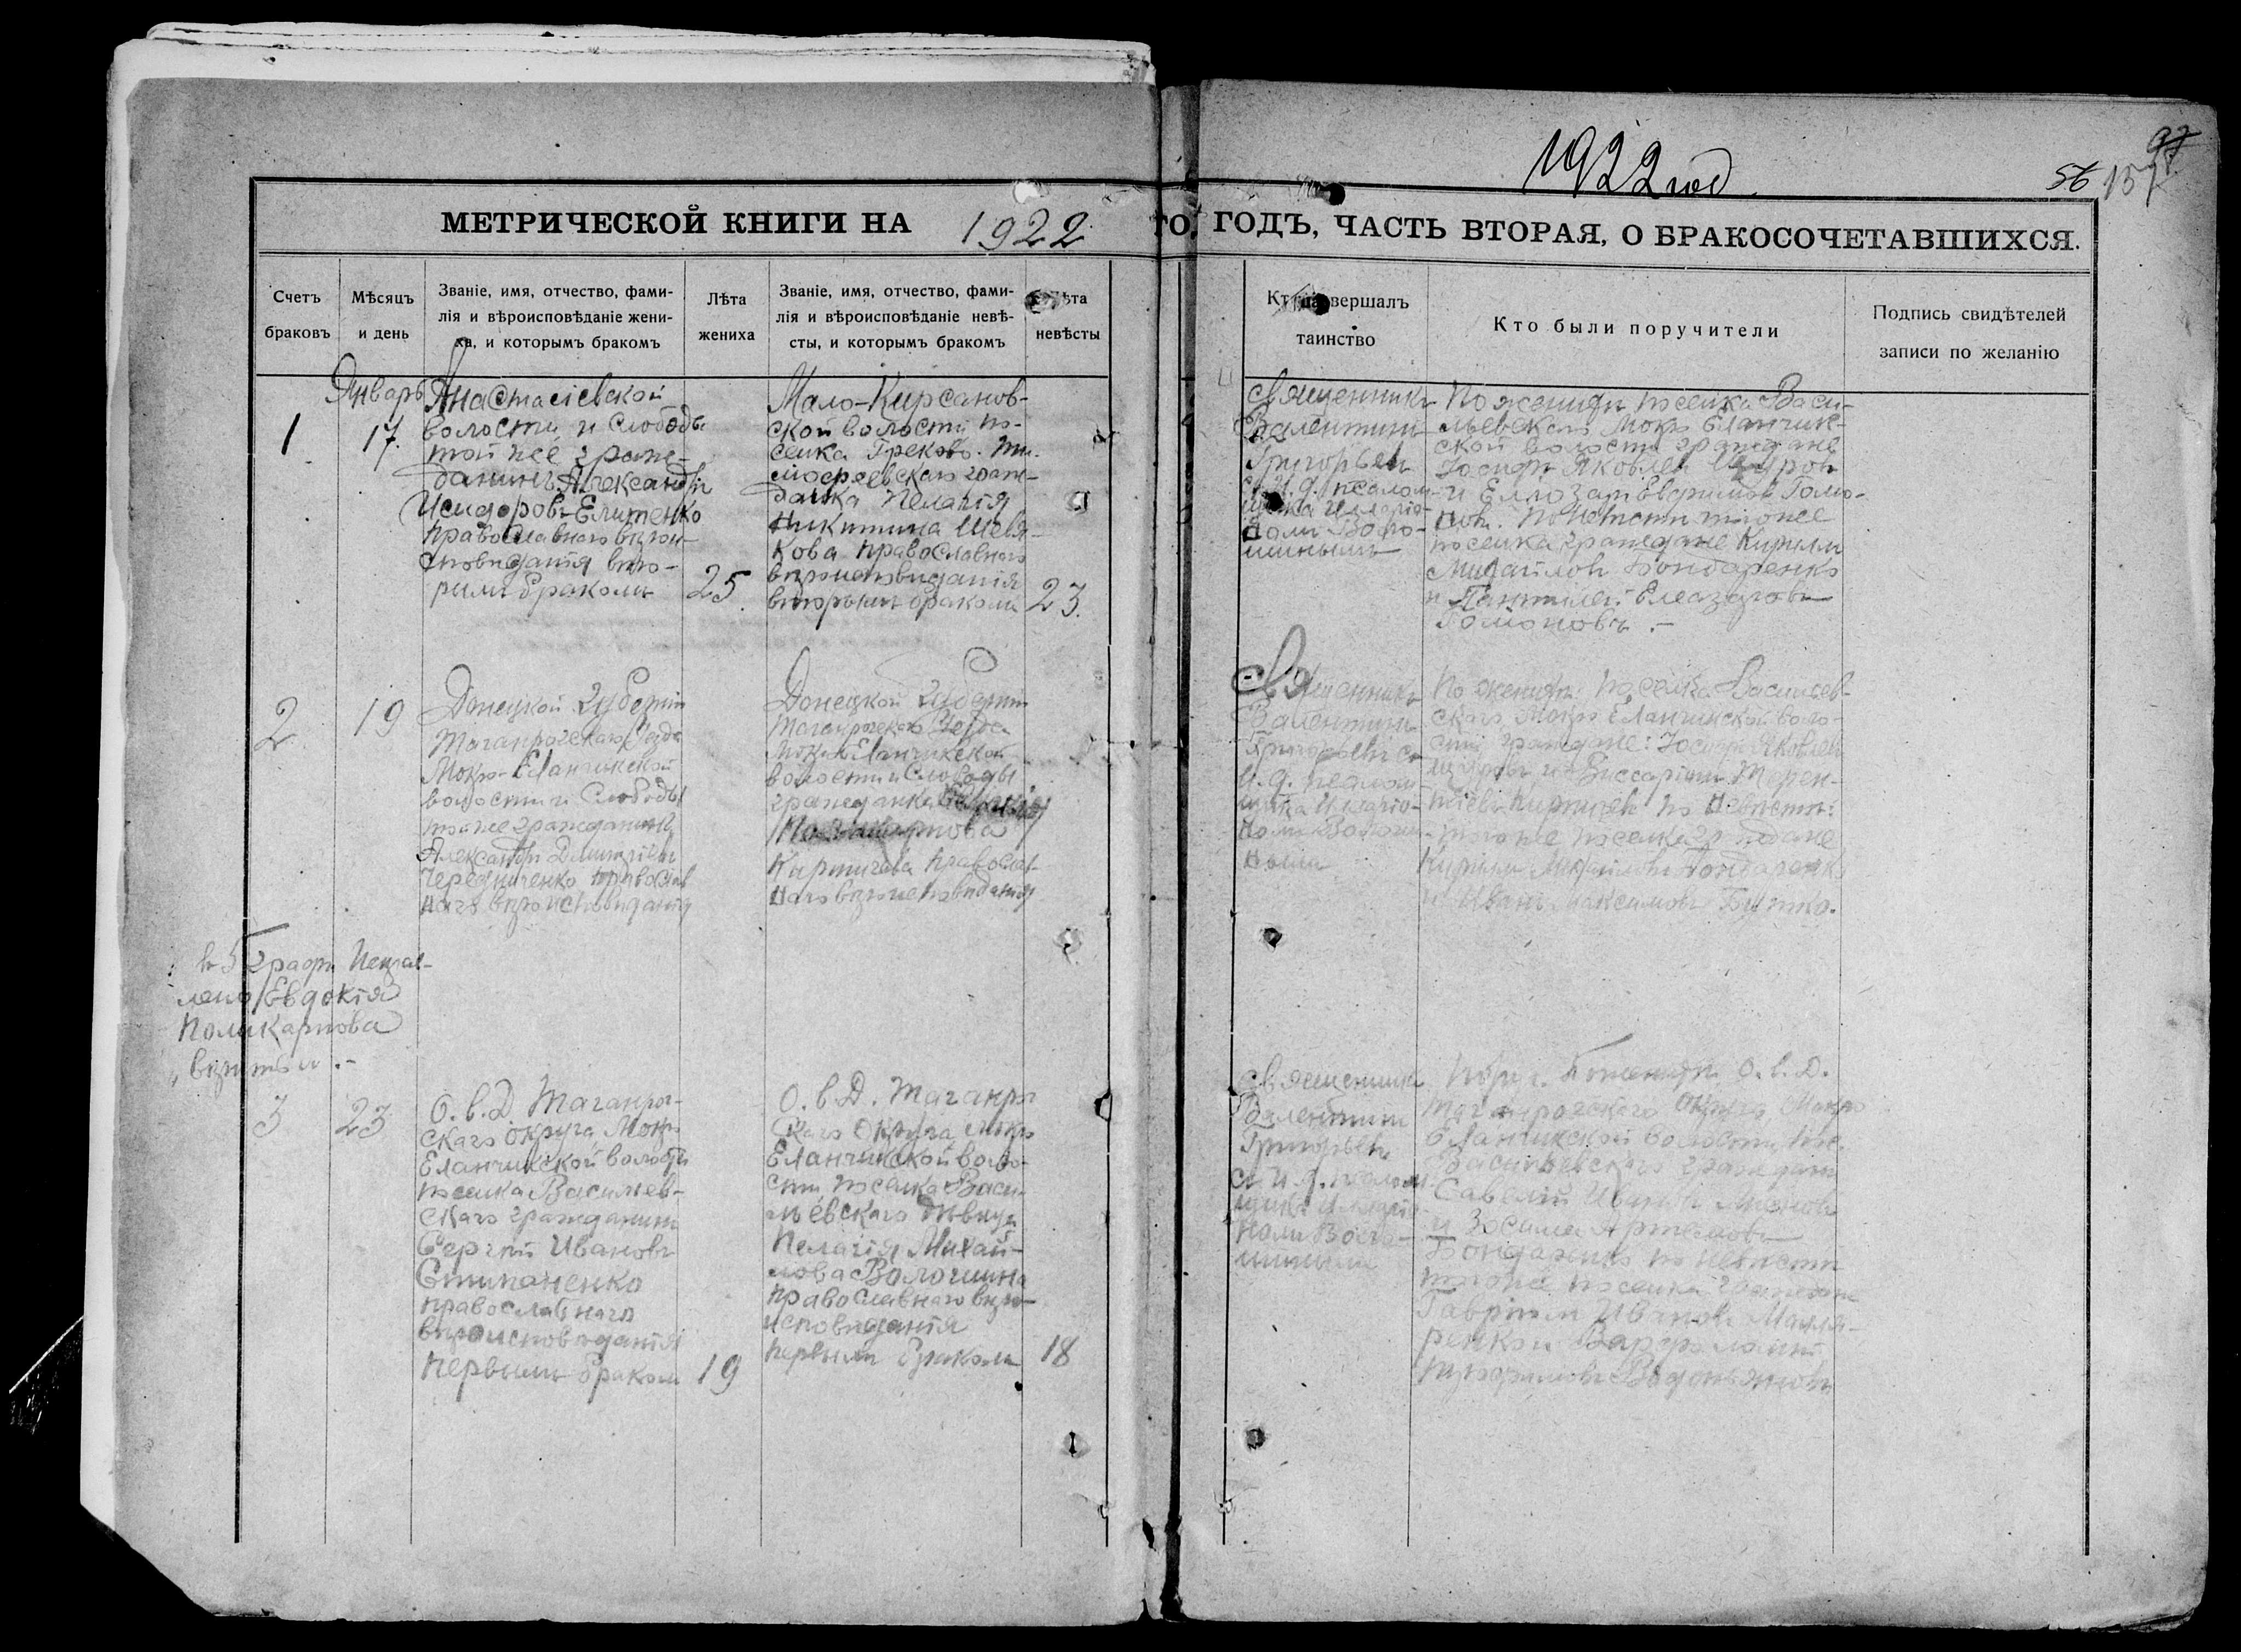 1922 год.
97
56 157
МЕТРИЧЕСКОЙ КНИГИ НА 1922 ГО, ГОДЪ, ЧАСТЬ ВТОРАЯ, О БРАКОСОЧЕТАВШИХСЯ.
Счетъ
браковъ
Мѣсяцъ
и день
Званіе, имя, отчество, фами-
лія и вѣроисповѣданіе жени-
ха, и которымъ бракомъ
Лѣта
жениха
Званіе, имя, отчество, фами-
лія и вѣроисповѣданіе невѣ-
сты, и которымъ бракомъ
Лѣта
невѣсты
Кто совершалъ
таинство
Кто были поручители
Подпись свидѣтелей
записи по желанію
1
Январь
17.
Анастасіевской
волости и Слободы
той же граж-
данинъ Александръ
Исидоровъ Елитенко
православнаго вѣрои-
сповѣданія вто-
рымъ бракомъ
25.
Мало-Кирсанов-
ской волости по-
селка Греково-Ти-
мофеевскаго граж-
данка Пелагія
Никитина
кова православнаго
вѣроисповѣданія
вторымъ бракомъ
23.
Священникъ
Валентинъ
Григорьевъ
съ И. д. псалом-
щика Илларіо-
номъ Воло-
шинымъ
По женихѣ поселка Васи-
льевскаго Мокро Еланчик-
ской волости граждане
Іосифъ Яковлевъ Щуровъ
и Елеазаръ Евфимовъ Гомо-
новъ. По невѣстѣ того же
поселка граждане Кириллъ
Михайловъ Бондаренко
и Пантилей Елеазаровъ
Гомоновъ.-
2
19
Донецкой Губерніи
Таганрогскаго Уезда
Мокро-Еланчикской
волости и Слободы
той же гражданинъ
Александръ Димитріевъ
Чередниченко православ
наго вѣроисповѣданія
Донецкой Губерніи
Таганрогскаго Уезда
Мокро Еланчикской
волости и Слободы
гражданка
Карпичева православ-
наго вѣроисповѣданія
Священникъ
Валентинъ
Григорьевъ съ
И. д. псалом-
щика Илларіо-
номъ Волоши-
нымъ
По женихѣ: поселка Васильев-
скаго Мокро Еланчикской воло-
сти граждане: Іосифъ Яковлевъ
Щуровъ и Виссаріонъ
по невѣстѣ:
того же поселка граждане
Кириллъ Михайловъ Бондаренко
и Иванъ Максимовъ
въ 5 графѣ исправ-
лено /Евдокія
Поликарпова/
вѣрить.-
3
23
О. в. Д. Таганрог-
скаго округа Мокро
Еланчикской волости
поселка Васильев-
скаго гражданинъ
Сергѣй Ивановъ
Стипаненко
православнаго
вѣроисповѣданія
первымъ бракомъ
19
О. в. Д. Таганрог
скаго Округа Мокро
Еланчикской воло-
сти, поселка Васи-
льевскаго дѣвица
Пелагія Михай-
лова Волошина
православнаго вѣро-
исповѣданія
первымъ бракомъ
18
Священникъ
Валентинъ
Григорьевъ
съ И. д. псалом
щика Илларіо-
номъ Воло-
шинымъ
По женихѣ О. в. Д.
Таганрогскаго Округа Мокро
Еланчикской волости, пос.
Васильевскаго граждане
Савелій Ивановъ
и Зосима Артемовъ
Бондаренко по невѣстѣ
того же поселка граждане
Гавріилъ Ивановъ
ренко и Варфоломей